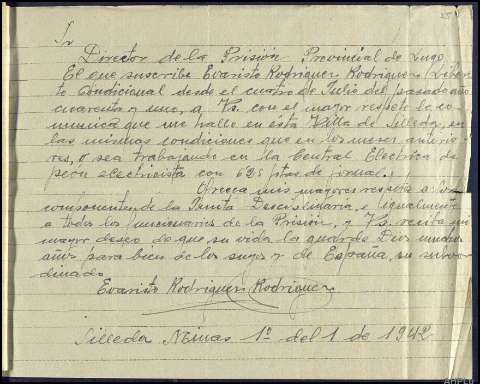 Sr
Director de la Prisión Provincial de Lugo
El que suscribe Evaristo Rodriguez Rodriguez, Liber
to Condicional desde el cuatro de Julio del pasado año
cuarenta y uno, a Vs. con el mayor respeto le co
munica que me hallo en esta Villa de Silleda, en
las mismas condiciones que en los meses anterio
res, o sea trabajando en la Central Electrica de
peon electricista con 6'25 ptas de jornal.
Ofrezca mis mayores respetos a los
componentes de la Junta Disciplinaria, e igualmente
a todos los funcionarios de la Prisión, y Vs. reciba mi
mayor deseo de que su vida la guarde Dios muchos
años para bien de los suyos y de España, su subor
dinado
Evaristo Rodriguez Rodriguez
Silleda Minas 1º del 1 de 1942
AHPLU